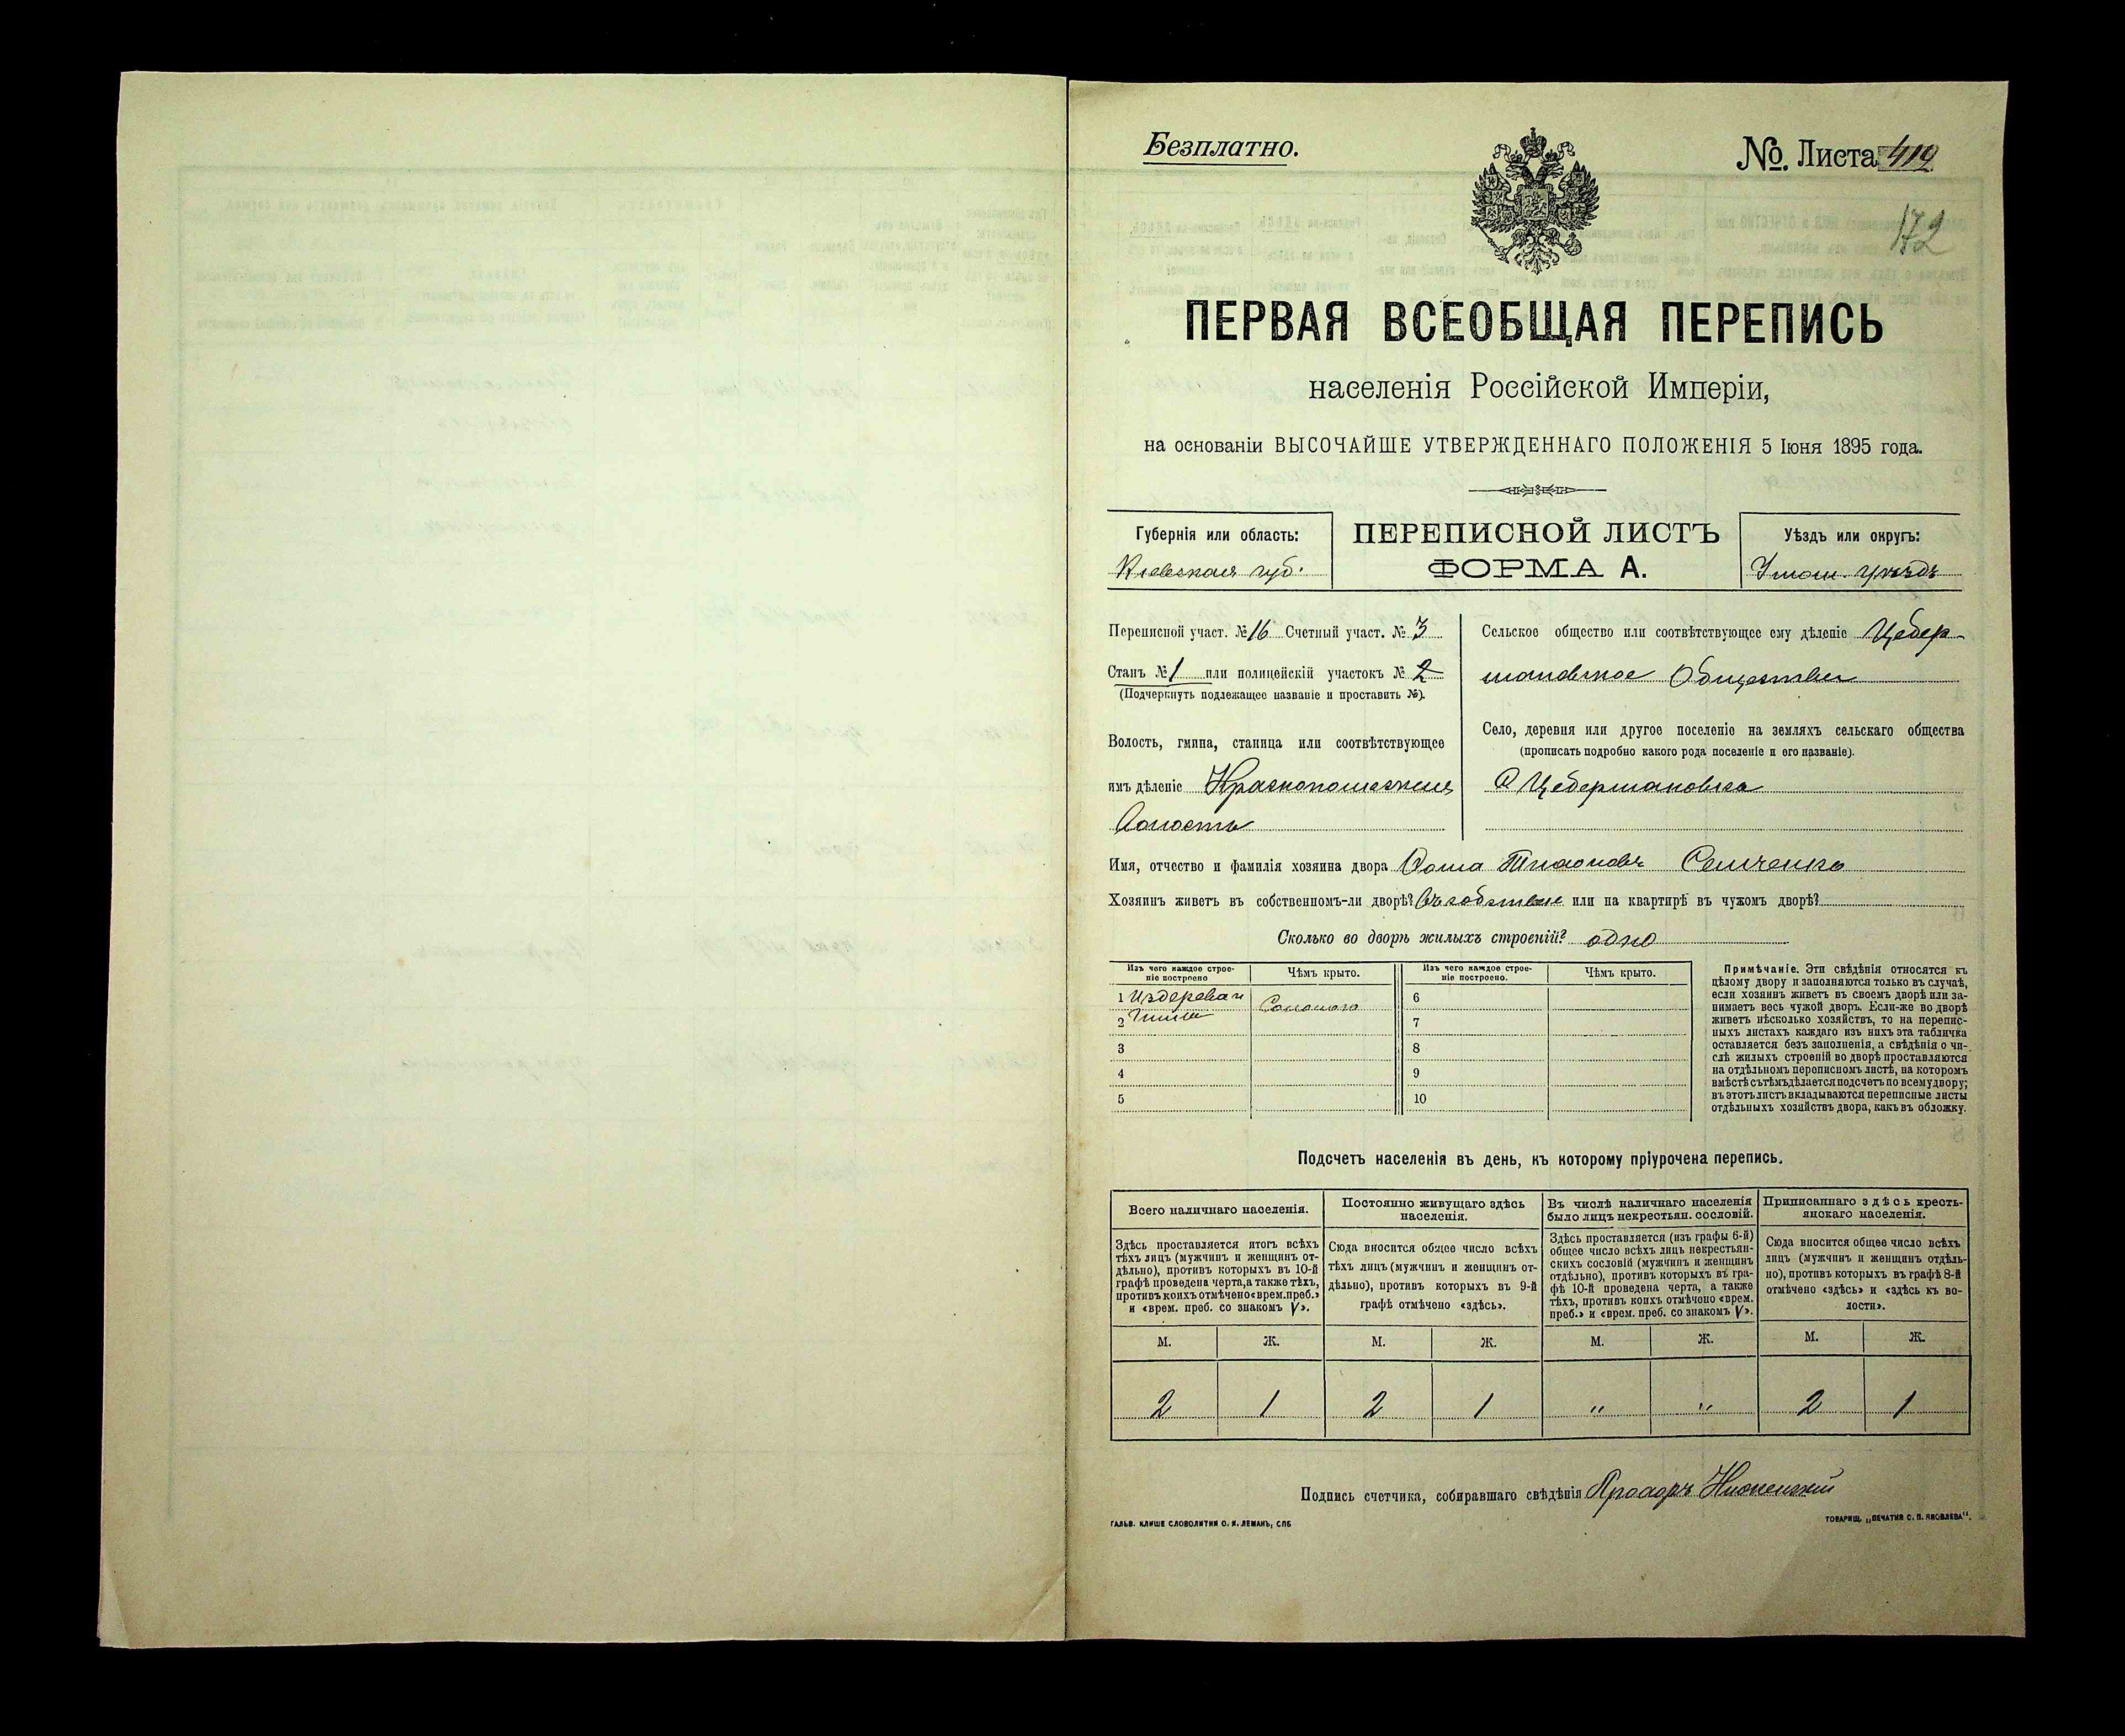 Безплатно.
№. Листа 412
172
ПЕРВАЯ ВСЕОБЩАЯ ПЕРЕПИСЬ
населенія Россійской Имперіи,
на основаніи ВЫСОЧАЙШЕ УТВЕРЖДЕННАГО ПОЛОЖЕНІЯ 5 Іюня 1895 года.
Губернія или область:
Кіевская губ.
ПЕРЕПИСНОЙ ЛИСТЪ
ФОРМА А.
Уѣздъ или округъ:
Уман. уѣздъ
Переписной участ. № 16 Счетный участ. № 3
Станъ № 1 или полицейскій участокъ № 2
(Подчеркнуть подлежащее названіе и проставить №).
Волость, гмина, станица или соотвѣтствующее
имъ дѣленіе Краснопольская
Волость
Сельское общество или соотвѣтствующее ему дѣленіе Цебер-
мановское Общество
Село, деревня или другое поселеніе на земляхъ сельскаго общества
(прописать подробно какого рода поселеніе и его названіе).
С Цебермановка
Имя, отчество и фамилія хозяина двора Семченко
Хозяинъ живетъ въ собственномъ-ли дворѣ? или на квартирѣ въ чужомъ дворѣ?
Сколько во дворѣ жилыхъ строеній? одно
Изъ чего каждое строе-
ніе построено
Чѣмъ крыто.
Изъ чего каждое строе-
ніе построено.
Чѣмъ крыто.
1 Изъ дерева и Соломою
2 глины
3
4
5
6
7
8
9
10
Примѣчаніе. Эти свѣдѣнія относятся къ
цѣлому двору и заполняются только въ случаѣ,
если хозяинъ живетъ въ своемъ дворѣ или за-
нимаетъ весь чужой дворъ. Если-же во дворѣ
живетъ нѣсколько хозяйствъ, то на перепис-
ныхъ листахъ каждаго изъ нихъ эта табличка
оставляется безъ заполненія, а свѣдѣнія о чи-
слѣ жилыхъ строеній во дворѣ проставляются
на отдѣльномъ переписномъ листѣ, на которомъ
вмѣстѣ съ тѣмъ дѣлается подсчетъ по всему двору;
въ этотъ листъ вкладываются переписные листы
отдѣльныхъ хозяйствъ двора, какъ въ обложку.
Подсчетъ населенія въ день, къ которому пріурочена перепись.
Всего наличнаго населенія.
Здѣсь проставляется итогъ всѣхъ
тѣхъ лицъ (мужчинъ и женщинъ от-
дѣльно), противъ которыхъ въ 10-й
графѣ проведена черта, а также тѣхъ,
противъ коихъ отмѣчено «врем. преб.»
и «врем. преб. со знакомъ V».
Постоянно живущаго здѣсь
населенія.
Сюда вносится общее число всѣхъ
тѣхъ лицъ (мужчинъ и женщинъ от-
дѣльно), противъ которыхъ въ 9-й
графѣ отмѣчено «здѣсь».
Въ числѣ наличнаго населенія
было лицъ некрестьян. сословій.
Здѣсь проставляется (изъ графы 6-й)
общее число всѣхъ лицъ некрестьян-
скихъ сословій (мужчинъ и женщинъ
отдѣльно), противъ которыхъ въ гра-
фѣ 10-й проведена черта, а также
тѣхъ, противъ коихъ отмѣчено «врем.
преб.» и «врем. преб. со знакомъ V».
Приписаннаго здѣсь кресть-
янскаго населенія.
Сюда вносится общее число всѣхъ
лицъ (мужчинъ и женщинъ отдѣль-
но), противъ которыхъ въ графѣ 8-й
отмѣчено «здѣсь» и «здѣсь къ во-
лости».
М. Ж. М. Ж. М. Ж. М. Ж.
2 1 2 1 " " 2 1
Подпись счетчика, собиравшаго свѣдѣнія Прохоръ
ГАЛЬВ. КЛИШЕ СЛОВОЛИТНИ О. И. ЛЕМАНЪ, СПБ
ТОВАРИЩ. „ПЕЧАТНЯ С. П. ЯКОВЛЕВА".